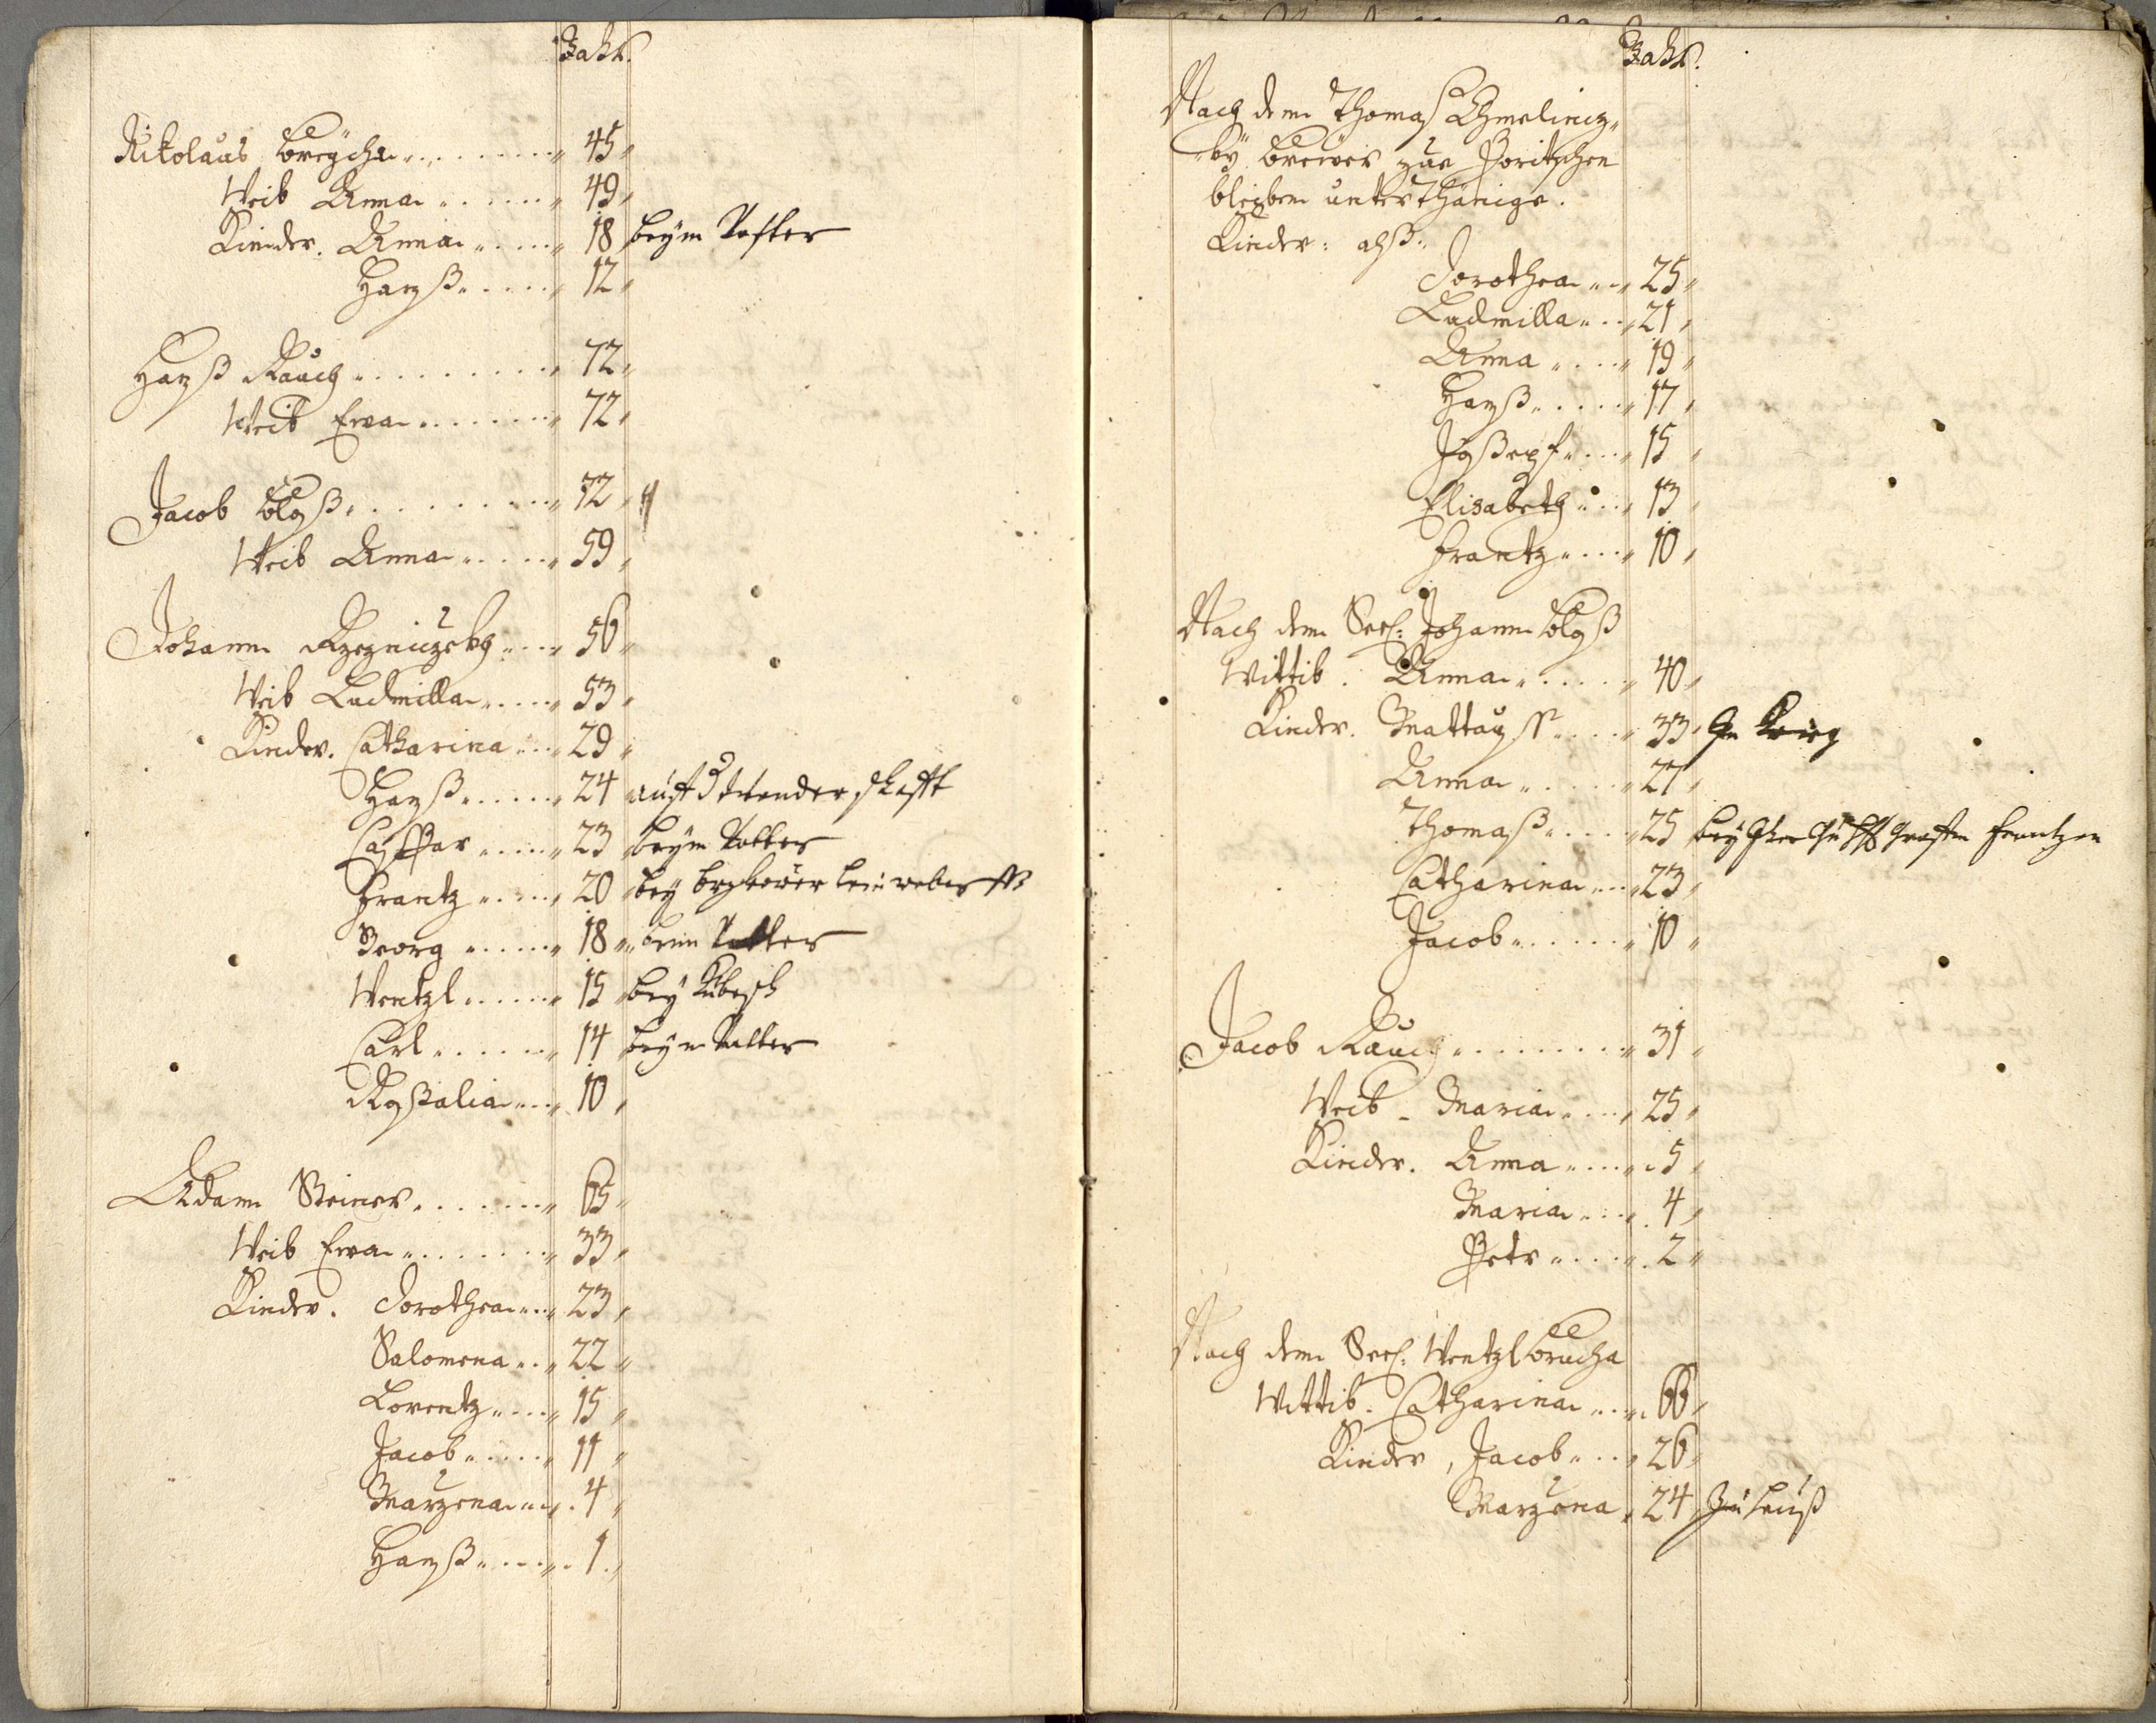 Jahr.
Nikolaus
45
Weib Anna
49
Kinder. Anna
18 beym Vatter
Hanß
12
Hanß Rauch
72
Weib Ewa
72
Jacob
72
Weib Anna
59
Johann
56
Weib Ludmilla
53
Kinder. Catharina
29
Hanß
24 auff d wanderschafft
Caspar
23 beym Vatter
Frantz
20 bey
Georg
18 beim Vatter
Wentzl
15 bey
Carl
14 beym Vatter
Roßalia
10
Adam Steiner
65
Weib Ewa
33
Kinder. Dorothea
23
Salomena
22
Lorentz
15
Jacob
11
Marzena
4
Hanß
1
Jahr.
Nach dem Thomas Chmelinz„
„ky zur Poritschen
bleiben unterthänige.
Kinder: alß:
Dorothea
25
Ludmilla
21
Anna
19
Hanß
17
Joßeph
15
Elisabeth
13
Frantz
10
Nach dem Seel: Johann
Wittib. Anna
40
Kinder.
33
Anna
27
Thomaß
25 bey
Catharina
23
Jacob
10
Jacob Rauch
31
Weib Maria
25
Kinder. Anna
5
Maria
4
Petr
2
Nach dem Seel: Wentzl
Wittib. Catharina
66
Kinder, Jacob
26
Marzena
24